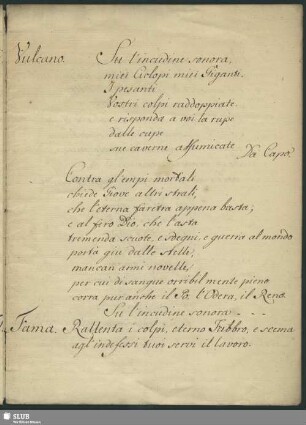 Vulcano. Su l'incudine sonora,
miei Ciclopi, miei Giganti,
I pesanti
Vostri colpi raddoppiate
e risponda a voi la rupe
dalle cupe
sue caverne affumicate. Da Capo.
Contra gl'empi mortali
chiede Giove altri strali,
che l'eterna faretra appena basta;
e al fero Dio, che l'asta
tremenda scuote, e sdegni, e guerra al mondo
porta giu dalle stelle,
mancan armi novelle,
per cui di sangue orribilmente pieno
corra pur anche il Po, l'Odera, il Reno.
Su l'incudine sonora - - -
La Fama. Rallenta i colpi, eterno Fabbro, e scema
agl'indefessi tuoi servi il lavoro.
SLUB